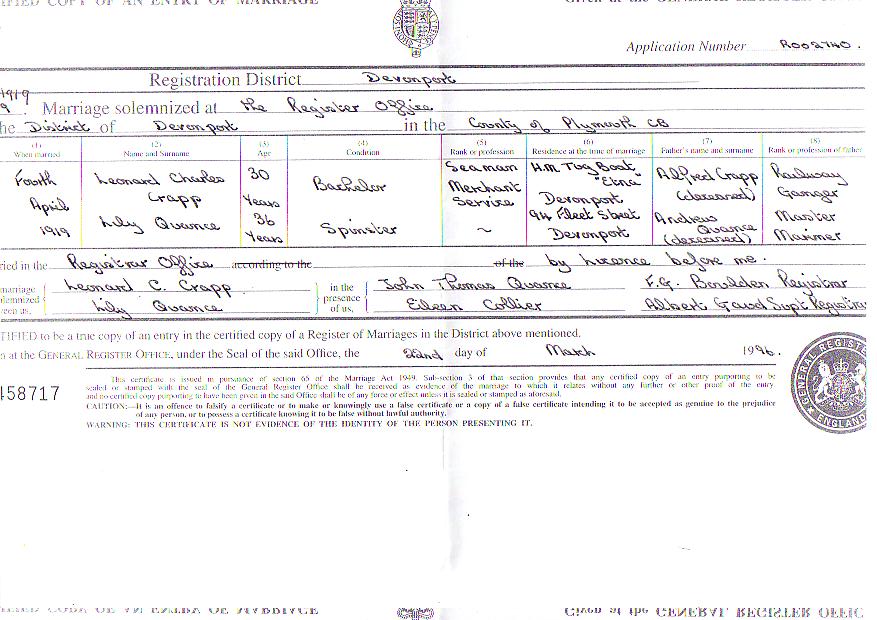 IFIED COPY OF AN ENTRY OF MARRIAGE Given at the GENERAL REGISTER
Application Number R002740.
Registration District Devonport
1919
9. Marriage solemnized at the Register Office
he District of Devonport in the County of Plymouth CB
(1) (2) (3) (4) (5) (6) (7) (8)
When married Name and Surname Age Condition Rank or profession Residence at the time of marriage Father's name and surname Rank or profession of father
Fourth April 1919 Leonard Charles Crapp 30 Years Bachelor Seaman Merchant Service H.M Tug Boat "Etna" Devonport Alfred Crapp (deceased) Railway Ganger
Lily Quance 36 Years Spinster ~ 94 Fleet Street Devonport Andrew Quance (deceased) Master Mariner
ried in the Registrar Office according to the of the by Licence before me.
marriage Leonard C. Crapp in the John Thomas Quance F.G. Boulden Registrar
lemnized presence
een us, Lily Quance of us, Eileen Collier Albert Supt Registrar
TIFIED to be a true copy of an entry in the certified copy of a Register of Marriages in the District above mentioned.
n at the GENERAL REGISTER OFFICE, under the Seal of the said Office, the 22nd day of March 1996.
458717
This certificate is issued in pursuance of section 65 of the Marriage Act 1949. Sub-section 3 of that section provides that any certified copy of an entry purporting to be
sealed or stamped with the seal of the General Register Office shall be received as evidence of the marriage to which it relates without any further or other proof of the entry,
and no certified copy purporting to have been given in the said Office shall be of any force or effect unless it is sealed or stamped as aforesaid.
CAUTION:—It is an offence to falsify a certificate or to make or knowingly use a false certificate or a copy of a false certificate intending it to be accepted as genuine to the prejudice
of any person, or to possess a certificate knowing it to be false without lawful authority.
WARNING: THIS CERTIFICATE IS NOT EVIDENCE OF THE IDENTITY OF THE PERSON PRESENTING IT.
GENERAL REGIST
ENGLAND
Given at the GENERAL REGISTER OFFIC